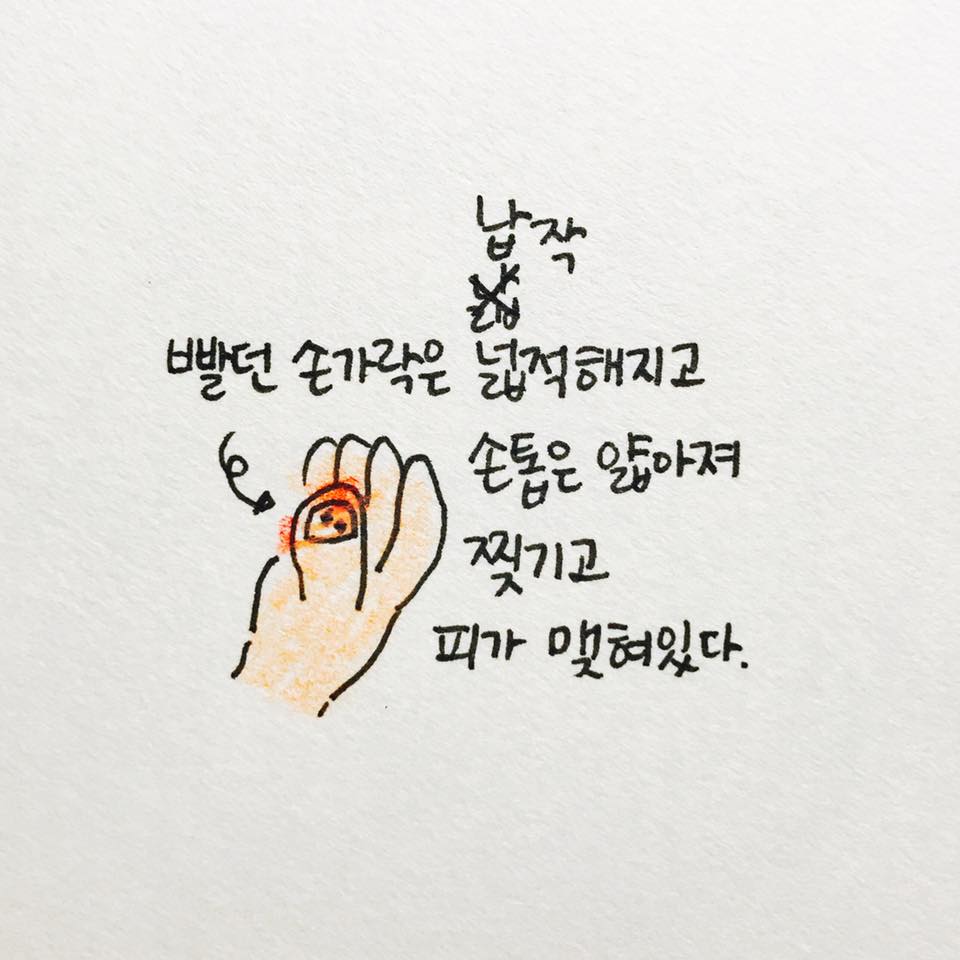 납작
빨던 손가락은 넓적해지고
손톱은 얇아져
찢기고
피가 맺혀있다.